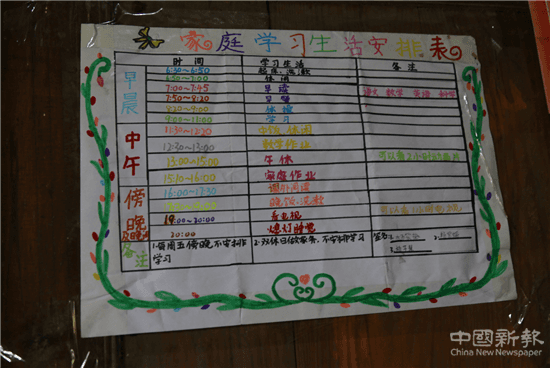 家庭学习生活安排表
时间 学习生活 备注
早晨
6:30~6:50 起床、洗漱
6:50~7:00 休闲
7:00~7:45 早读 语文 数学 英语 科学
7:50~8:20 早餐
8:20~9:00 休息
9:00~11:00 学习
中午
11:30~12:20 中饭、休闲
12:30~13:00 数学作业
13:00~15:00 午休
15:10~16:00 家庭作业
傍晚及晚上
16:00~17:30 课外阅读
晚饭、洗漱
19:00~20:00 看电视
20:00 熄灯睡觉
备注
1、每周五傍晚不安排学习
2、双休日做家务，不安排学习
签名：
中國新報
China New Newspaper